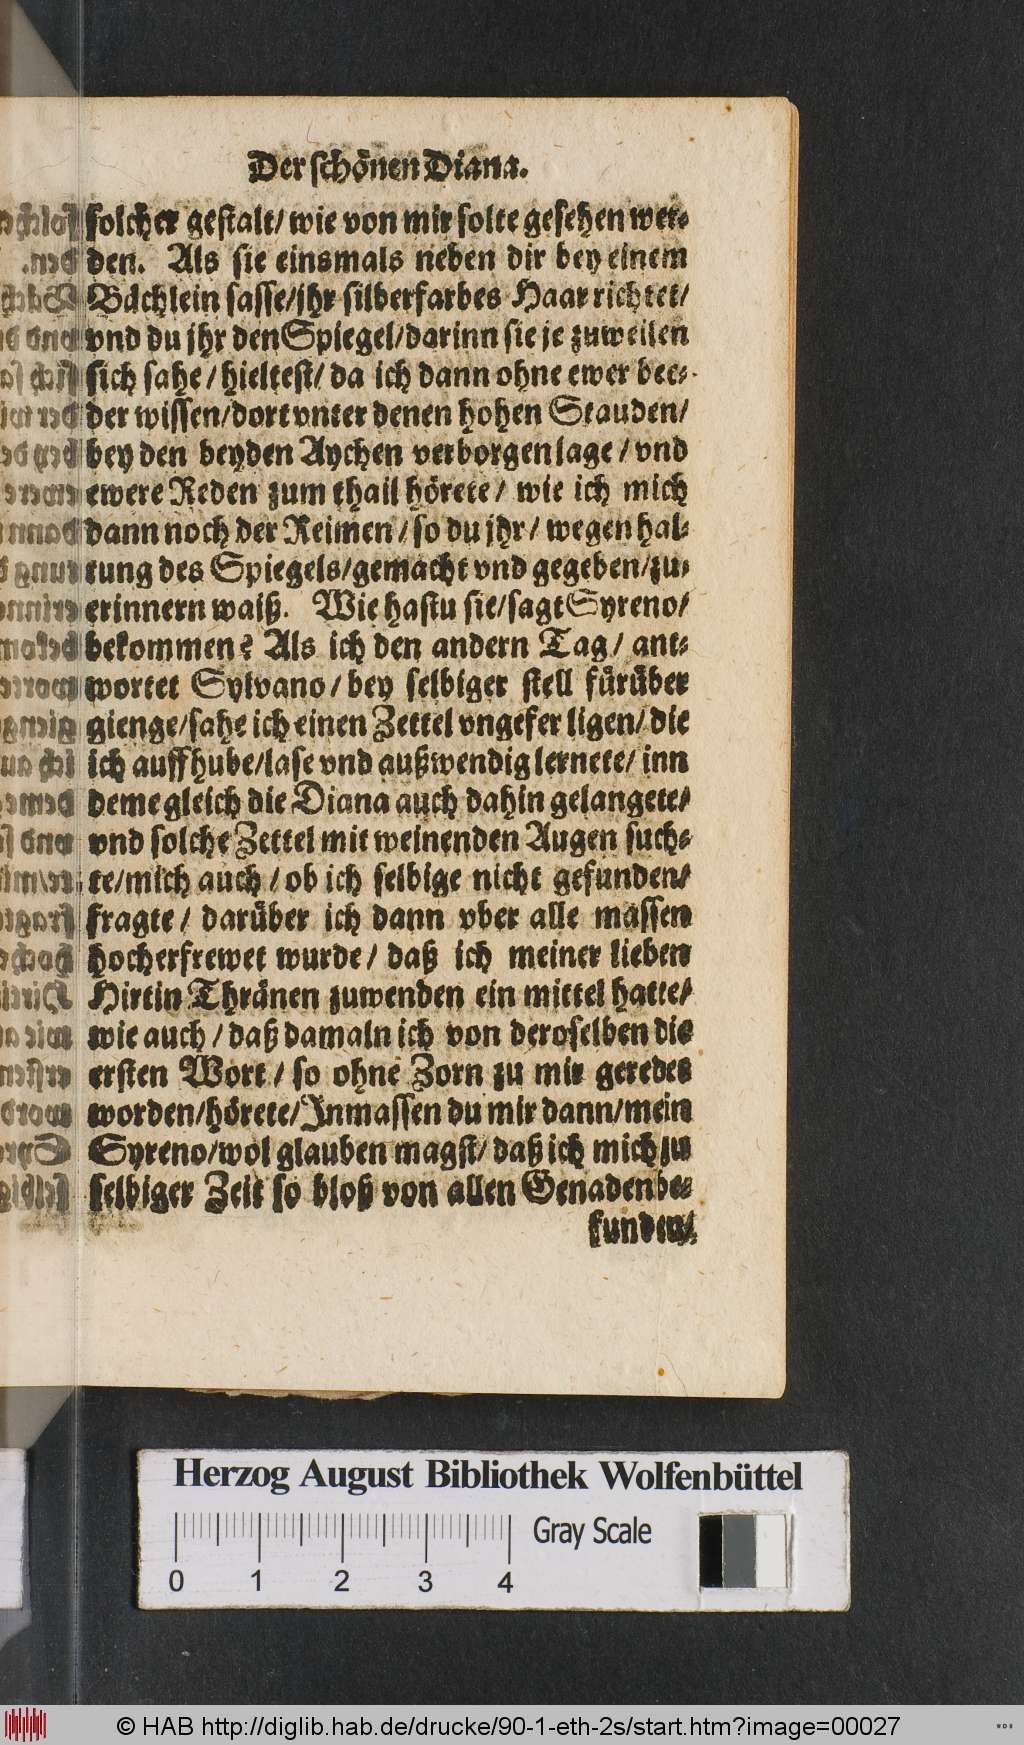 Der schönen Diana.
solcher gestalt/ wie von mir solte gesehen wer-
den. Als sie einsmals neben dir bey einem
Bächlein sasse/jhr silberfarbes Haar richtet/
vnd du jhr den Spiegel/darinn sie je zuweilen
sich sahe/ hieltest/ da ich dann ohne ewer bee-
der wissen/dort vnter denen hohen Stauden/
bey den beyden Aychen verborgen lage/ vnd
ewere Reden zum thail hörete/ wie ich mich
dann noch der Reimen/ so du jhr/ wegen hal-
tung des Spiegels/gemacht vnd gegeben/zu-
erinnern waiß. Wie hastu sie/sagt Syreno/
bekommen? Als ich den andern Tag/ ant-
wortet Sylvano/ bey selbiger stell fürüber
gienge/sahe ich einen Zettel vngefer ligen/ die
ich auffhube/lase vnd außwendig lernete/ inn
deme gleich die Diana auch dahin gelangete/
vnd solche Zettel mit weinenden Augen such-
te/mich auch/ ob ich selbige nicht gefunden/
fragte/ darüber ich dann vber alle massen
hocherfrewet wurde/ daß ich meiner lieben
Hirtin Thränen zuwenden ein mittel hatte/
wie auch/ daß damaln ich von deroselben die
ersten Wort/ so ohne Zorn zu mir geredes
worden/hörete/Inmassen du mir dann/mein
Syreno/wol glauben magst/ daß ich mich zu
selbiger Zeit so bloß von allen Genaden be-
funden/
Herzog August Bibliothek Wolfenbüttel
Gray Scale
0 1 2 3 4
© HAB http://diglib.hab.de/drucke/90-1-eth-2s/start.htm?image=00027